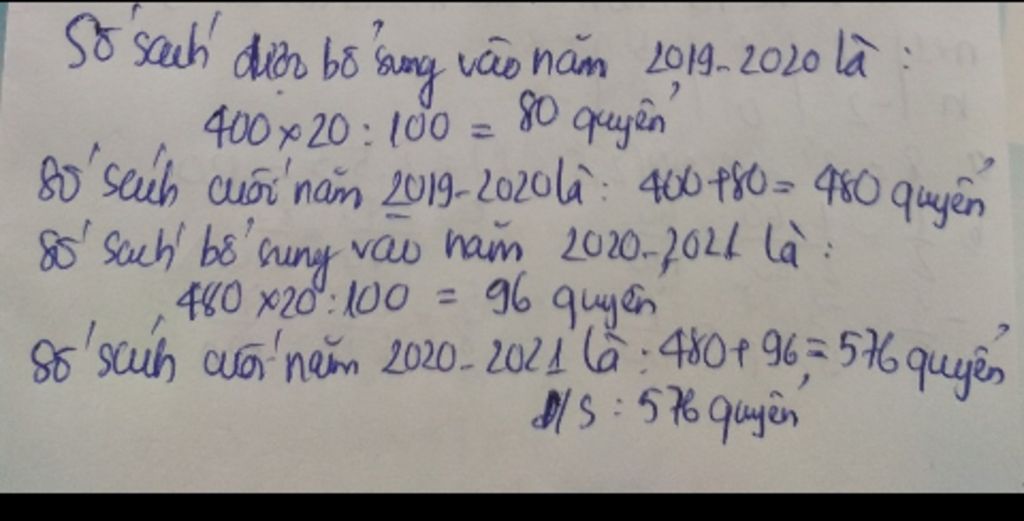 Số sách được bổ sung vào năm 2019-2020 là:
400 x 20 : 100 = 80 quyển
Số sách cuối năm 2019-2020 là: 400+80= 480 quyển
Số sách bổ sung vào năm 2020-2021 là:
480 x 20 : 100 = 96 quyển
Số sách cuối năm 2020-2021 là: 480+96=576 quyển
Đ/S : 576 quyển